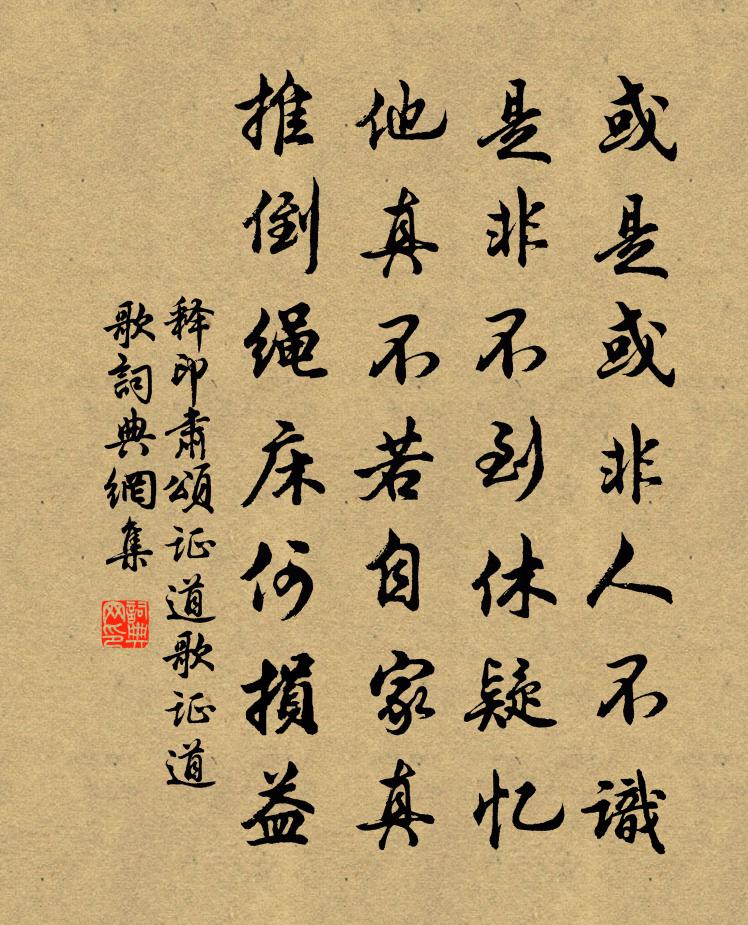 或是或非人不識
是非不到休疑忆
他真不若自家真
推倒绳床何損益
释印肃頌证道歌证道
歌詞典網集
詞典网印